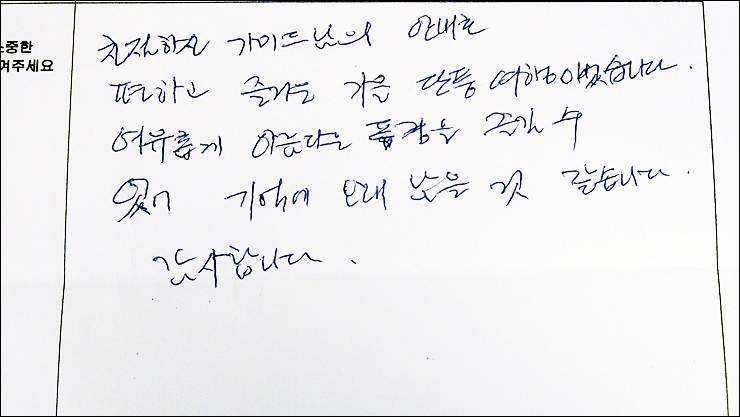 소중한
여주세요
친절하신 가이드님의 안내로
편하고 즐거운 가을 단풍 여행이었습니다.
여유롭게 아름다운 풍경을 즐길 수
있어 기억에 오래 남을 것 같습니다.
감사합니다.